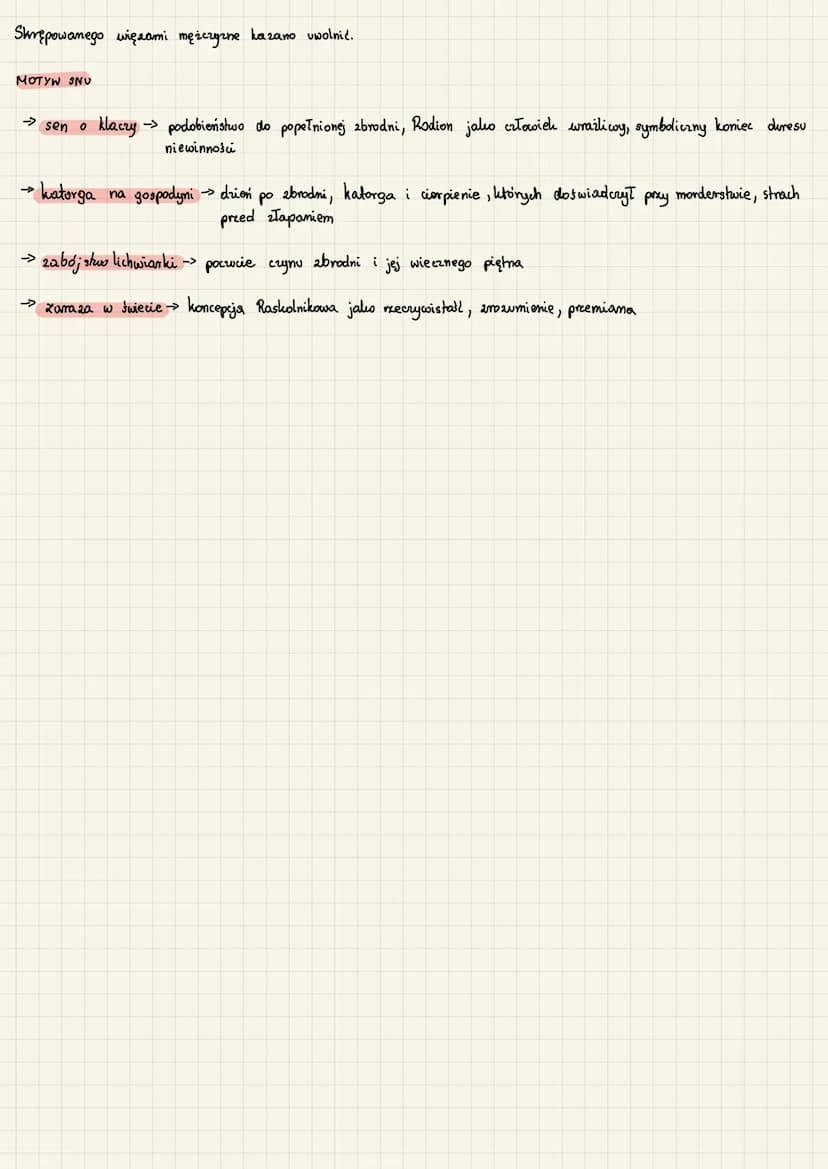 Skrępowanego więzami mężczyznę kazano uwolnić.
MOTYW SNU
→ sen o klaczy → podobieństwo do popełnionej zbrodni, Rodion jako człowiek wrażliwy, symboliczny koniec okresu
niewinności
→ katorga na gospodyni → dzień po zbrodni, katorga i cierpienie, których doświadczył przy morderstwie, strach
przed złapaniem
→ zabójstwo lichwiarki → poczucie czynu zbrodni i jej wiecznego piętna
→ zaraza w świecie → koncepcja Raskolnikowa jako rzeczywistość, zrozumienie, przemiana